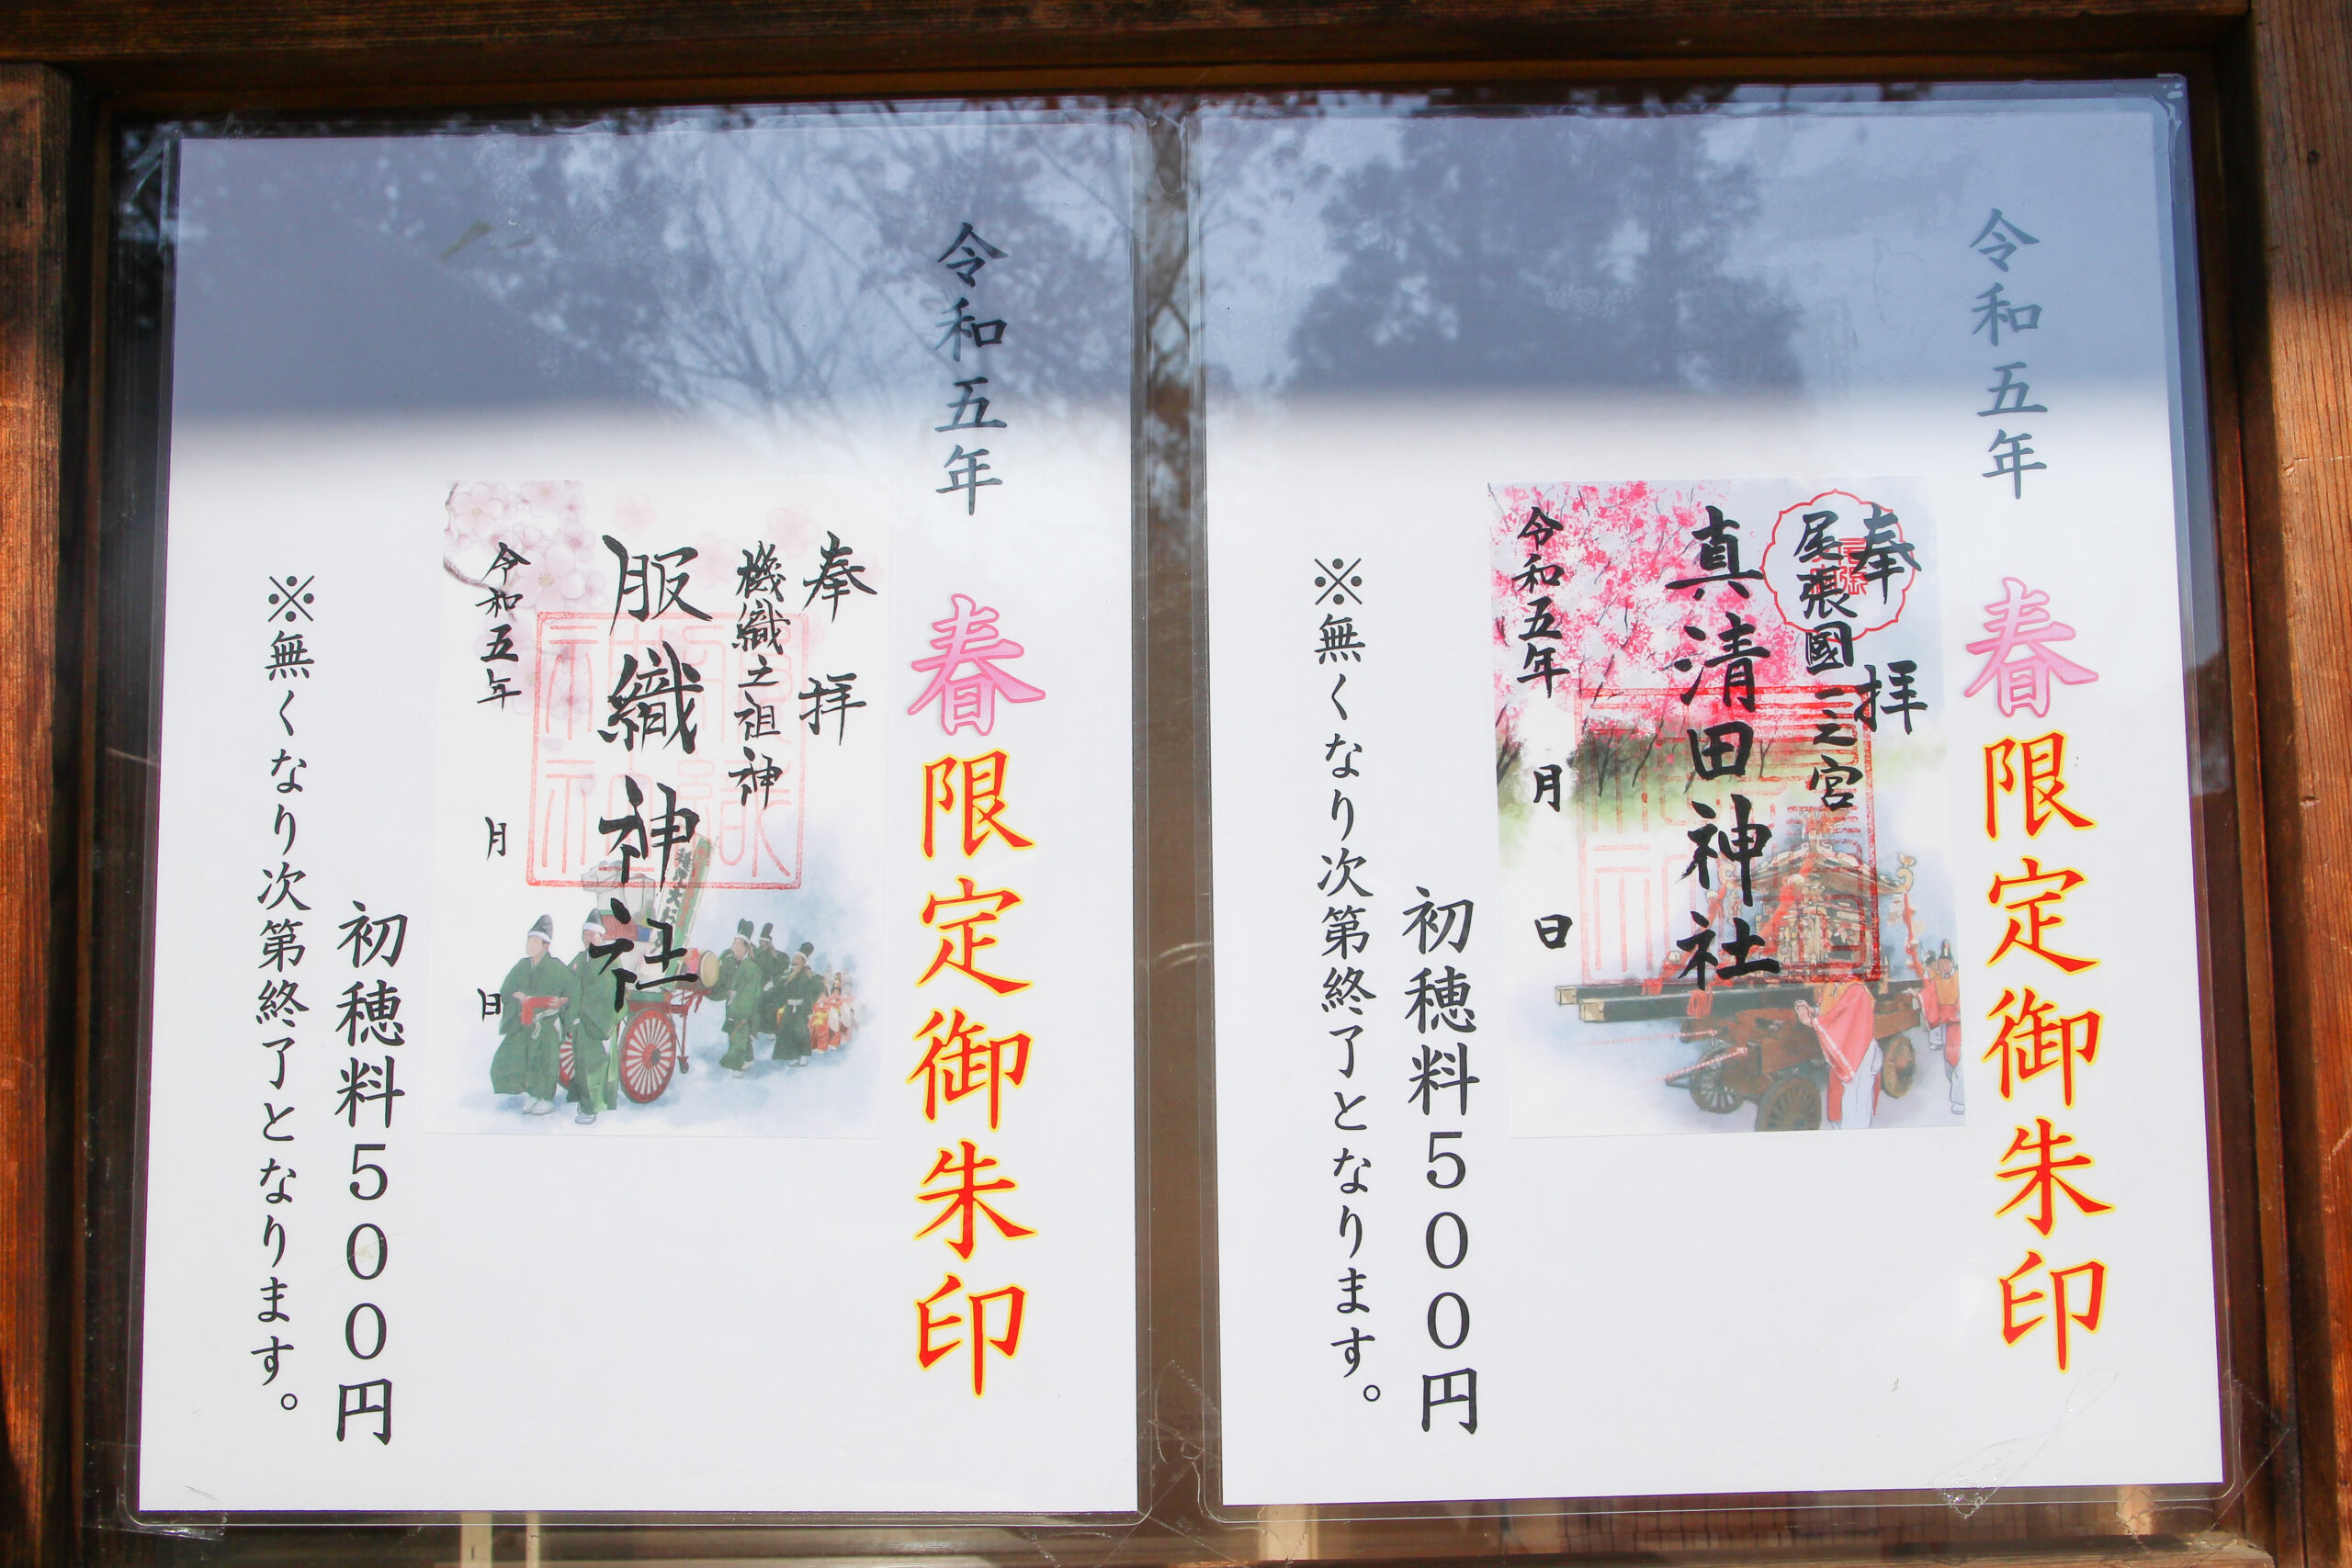 令和五年 春限定御朱印
奉拝
尾張國一之宮
真清田神社
令和五年 月 日
初穂料500円
※無くなり次第終了となります。
令和五年 春限定御朱印
奉拝
機織之祖神
服織神社
令和五年 月 日
初穂料500円
※無くなり次第終了となります。